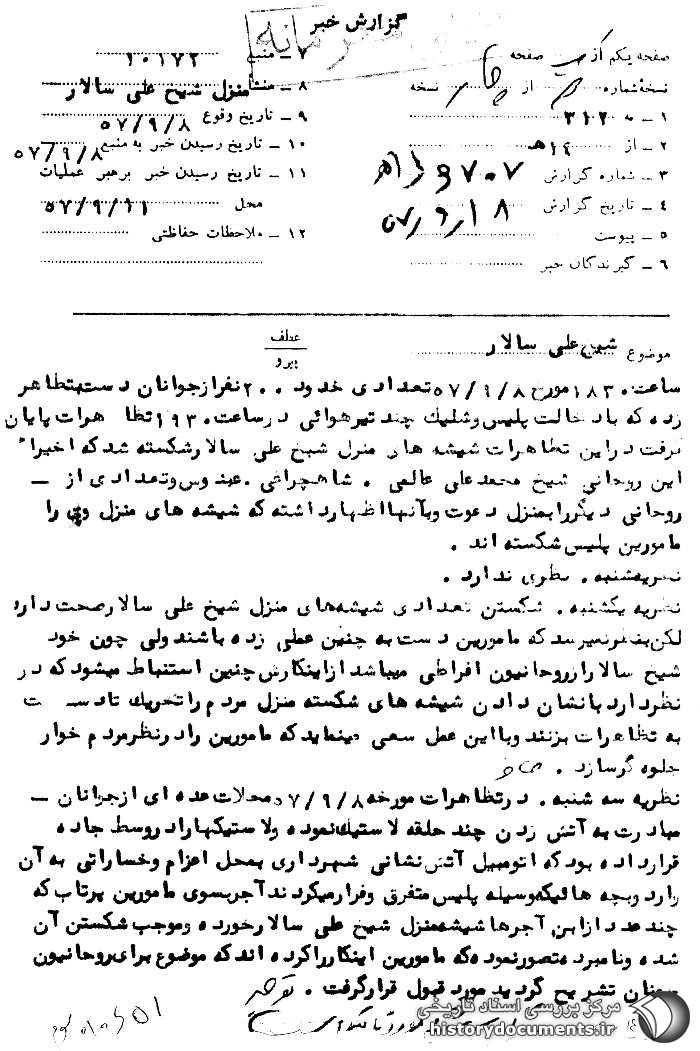 گزارش خبر
محرمانه
صفحه یکم از صفحه
نسخهٔ شماره از نسخه
۱ – به ۳۱۲
۲ – از ۱۴ هـ
۳ – شماره گزارش
۴ – تاریخ گزارش ۵۷/۹/۱۸
۵ – پیوست
۶ – گیرندگان خبر
۷ – منبع ۱۰۱۷۲
۸ – منشا منزل شیخ علی سالار
۹ – تاریخ وقوع ۵۷/۹/۸
۱۰ – تاریخ رسیدن خبر به منبع ۵۷/۹/۸
۱۱ – تاریخ رسیدن خبر برهبر عملیات
محل ۵۷/۹/۱۱
۱۲ – ملاحظات حفاظتی
موضوع شیخ علی سالار
عطف
پیرو
ساعت ۱۸۳۰ مورخ ۵۷/۹/۸ تعدادی حدود ۲۰۰ نفر از جوانان دست بتظاهر
زده که با دخالت پلیس و شلیك چند تیر هوائی در ساعت ۱۹۳۰ تظاهرات پایان
گرفت در این تظاهرات شیشه های منزل شیخ علی سالار شکسته شد که اخیراً
این روحانی شیخ محمد علی عالمی . شاهچراغی . و تعدادی از –
روحانی دیگر را بمنزل دعوت و بآنها اظهار داشته که شیشه های منزل وی را
مامورین پلیس شکسته اند .
نظریه شنبه . نظری ندارد .
نظریه یکشنبه . شکستن تعدادی شیشه‌های منزل شیخ علی سالار صحت دارد
لکن بنظر نمیرسد که مامورین دست به چنین عملی زده باشند ولی چون خود
شیخ سالار از روحانیون افراطی میباشد از اینکارش چنین استنباط میشود که در
نظر دارد با نشان دادن شیشه های شکسته منزل مردم را تحریك تا دست
به تظاهرات بزنند و با این عمل سعی مینماید که مامورین را در نظر مردم خوار
جلوه گر سازد .
نظریه سه شنبه . در تظاهرات مورخه ۵۷/۹/۸ محلات عده ای از جوانان –
مبادرت به آتش زدن چند حلقه لاستیك نموده و لاستیکها را در وسط جاده
قرار داده بود که اتومبیل آتش نشانی شهرداری بمحل اعزام و خساراتی به آن
وارد و بچه هائیکه وسیله پلیس متفرق و فرار میکردند آجر بسوی مامورین پرتاب که
چند عدد از این آجرها شیشه منزل شیخ علی سالار خورده و موجب شکستن آن
شده و نامبرده تصور نموده که مامورین اینکار را کرده اند که موضوع برای روحانیون
سمنان تشریح گردید مورد قبول قرار گرفت .
مرکز بررسی اسناد تاریخی
historydocuments.ir